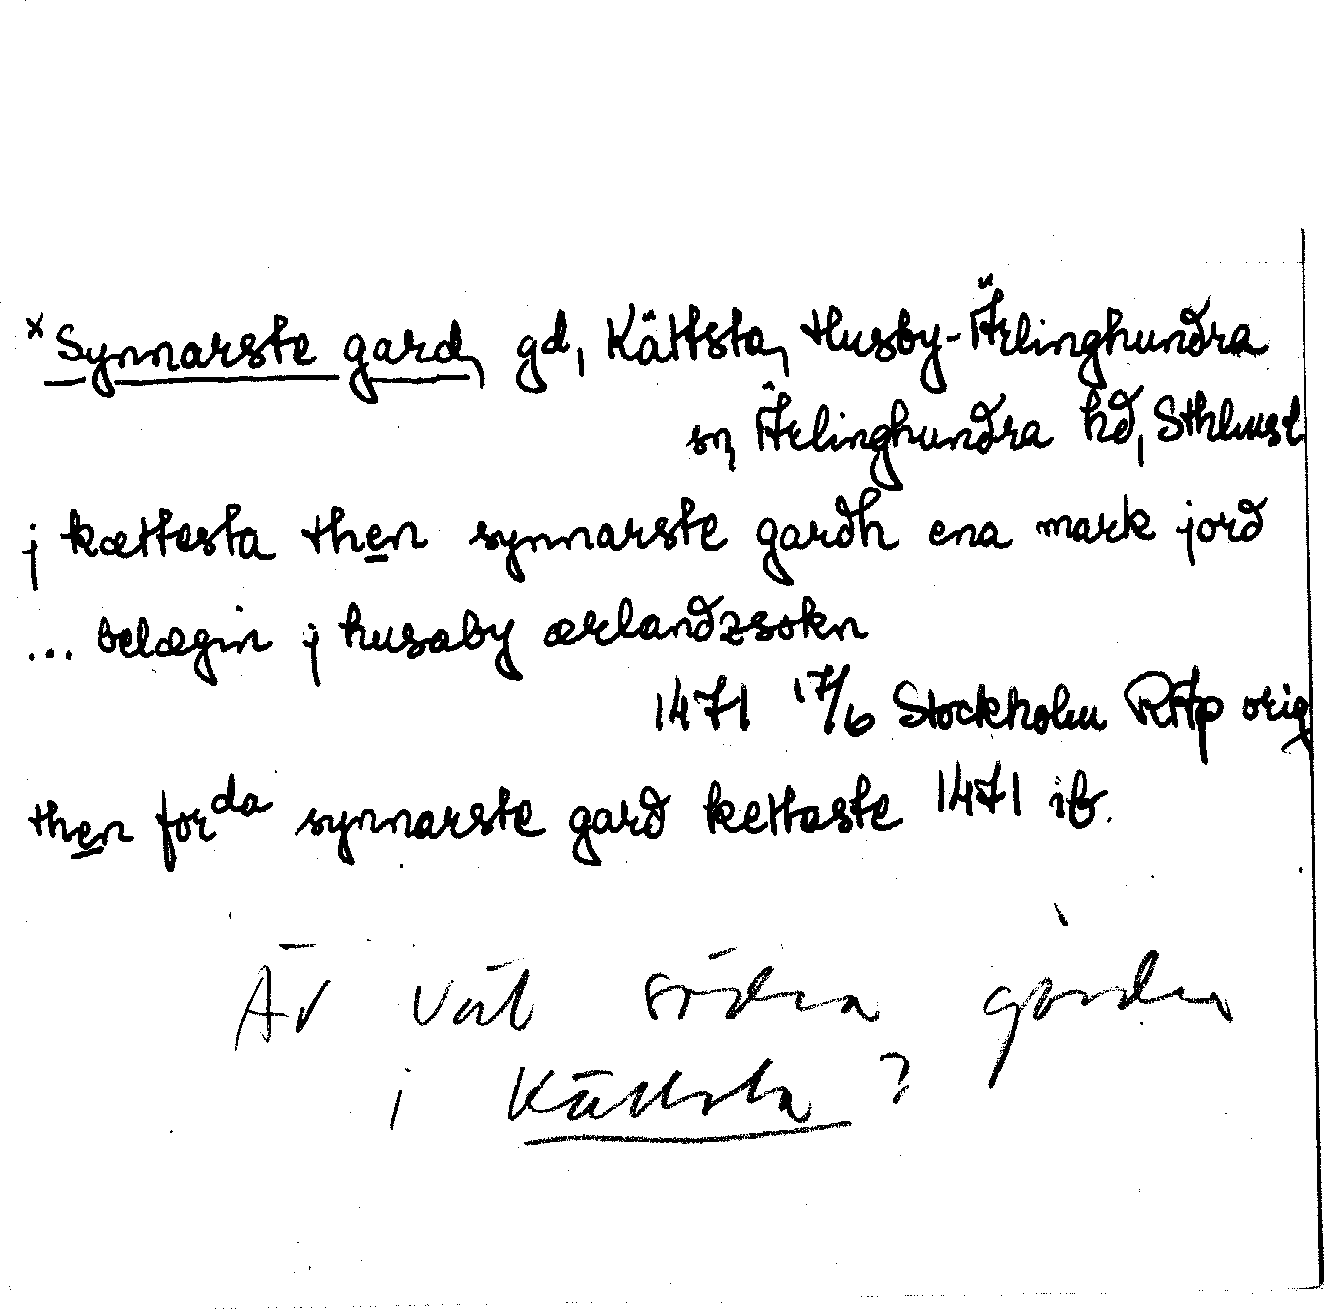 x Synnarste gard, gd, Kättsta, Husby-Ärlinghundra
sn, Ärlinghundra hd, Sthlmsl
j kættesta then synnarste gardh ena mark jord
... belægin j husaby ærlandzsokn
1471 17/6 Stockholm RAp orig
then forda synnarste gard kettaste 1471 ib.
Är väl södra gården
i Kättsta?